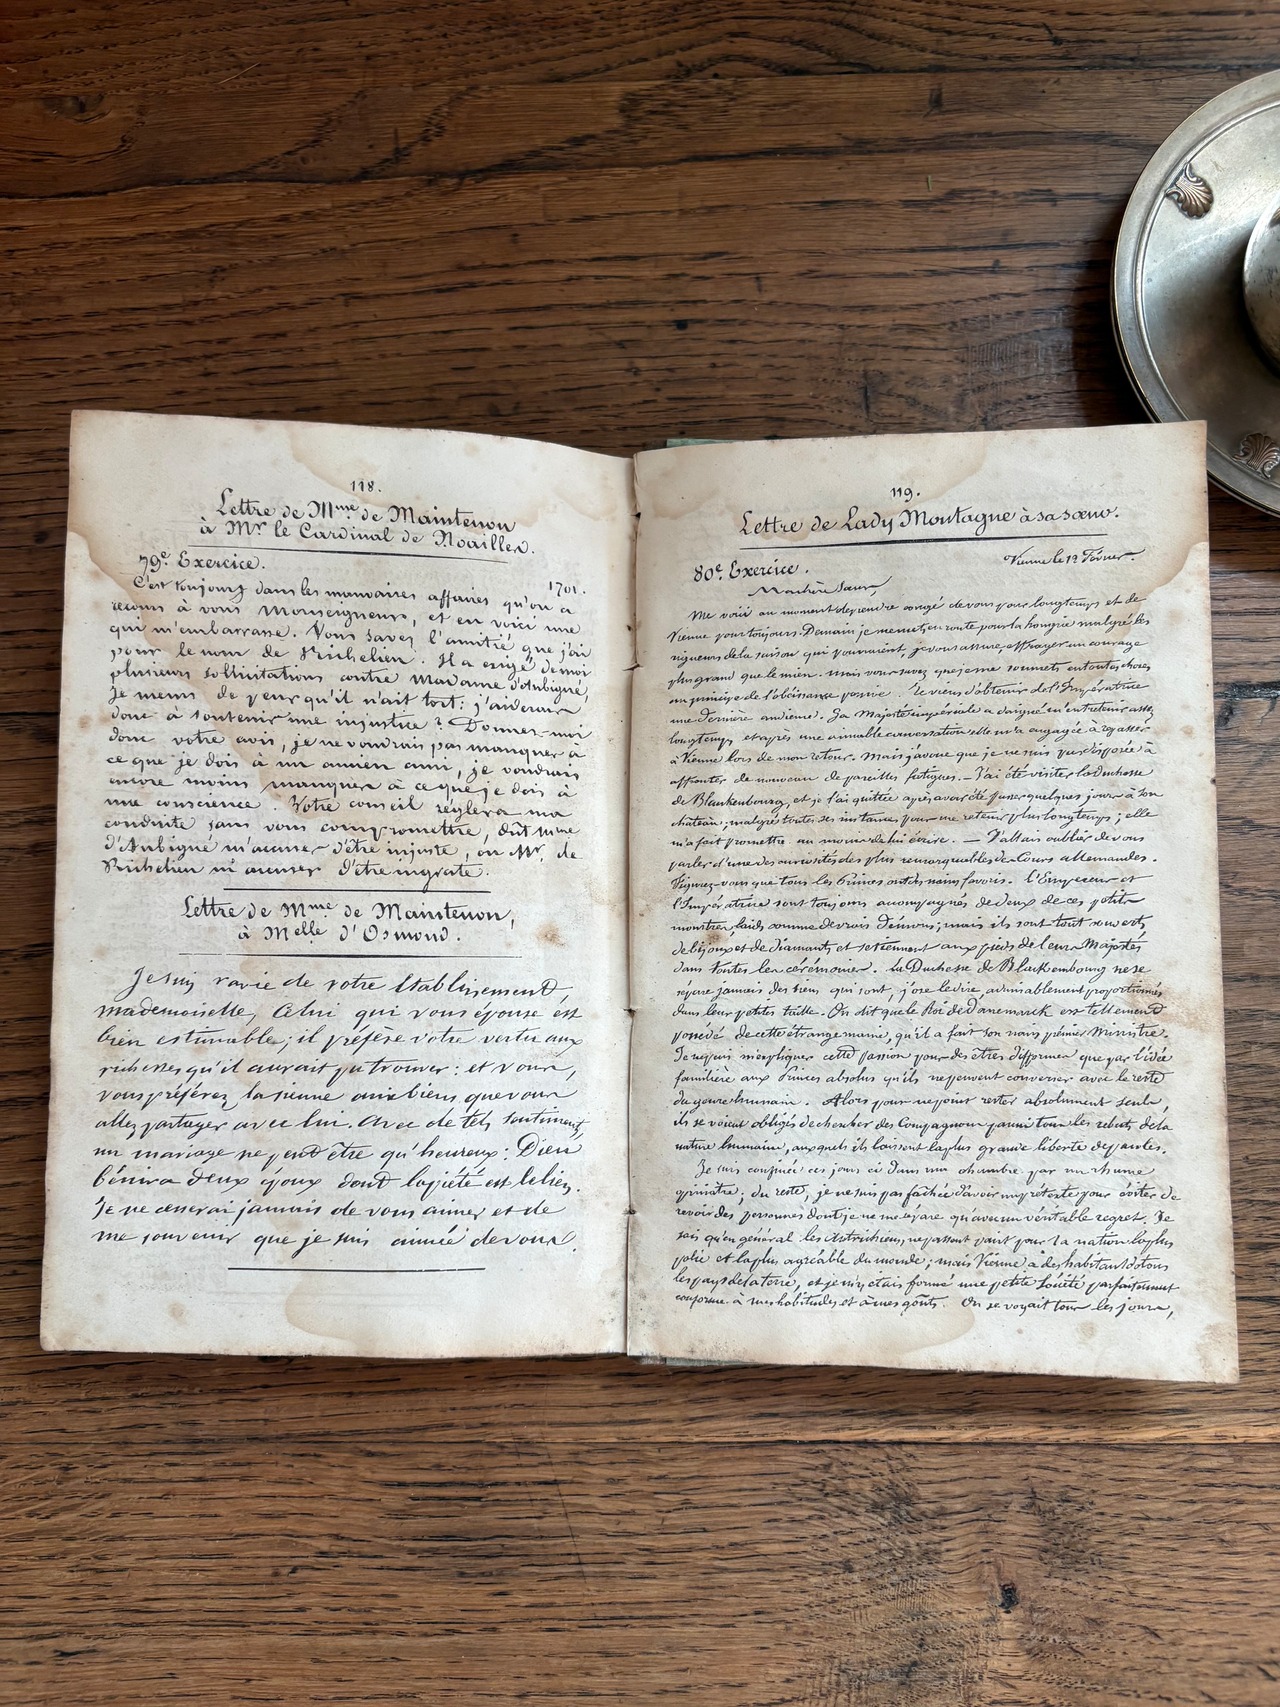 118.
Lettre de Mme de Maintenon
à Mr le Cardinal de Noailles.
79e Exercice.
1701.
C'est toujours dans les mauvaises affaires qu'on a
recours à vous Monseigneur, et en voici une
qui m'embarrasse. Vous savez l'amitié que j'ai
pour le nom de Richelieu. Il a exigé de moi
plusieurs sollicitations contre Madame d'Aubigné,
je meurs de peur qu'il n'ait tort: j'aiderais
donc à soutenir une injustice? Donnez-moi
donc votre avis, je ne voudrais pas manquer à
ce que je dois à un ancien ami, je voudrais
encore moins manquer à ce que je dois à
ma conscience. Votre conseil réglera ma
conduite sans vous compromettre, dût Mme
d'Aubigné m'accuser d'être injuste, ou Mr. de
Richelieu m'accuser d'être ingrate.
Lettre de Mme de Maintenon,
à Melle d'Osmond.
Je suis ravie de votre établissement,
mademoiselle, Celui qui vous épouse est
bien estimable; il préfère votre vertu aux
richesses qu'il aurait pu trouver: et vous,
vous préférez la sienne aux biens que vous
allez partager avec lui. Avec de tels sentiments,
un mariage ne peut être qu'heureux: Dieu
bénira deux époux dont la piété est le lien.
Je ne cesserai jamais de vous aimer et de
me souvenir que je suis aimée de vous.
119.
Lettre de Lady Montague à sa sœur.
80e. Exercice.
Vienne le 1er Février.
Ma chère Sœur,
Me voici au moment de prendre congé de vous pour longtemps et de
Vienne pour toujours. Demain je me mets en route pour la hongrie malgré les
rigueurs de la saison qui pourraient, je vous assure, effrayer un courage
plus grand que le mien. mais vous savez que je me soumets en toutes choses
au principe de l'obéissance passive. Je viens d'obtenir de l'Impératrice
une dernière audience. Sa Majesté impériale a daigné m'entretenir assez
longtemps, et après une aimable conversation elle m'a engagée à repasser
à Vienne lors de mon retour. Mais j'avoue que je ne suis pas disposée à
affronter de nouveau de pareilles fatigues. — J'ai été visiter la duchesse
de Blankenbourg, et je l'ai quittée après avoir été passer quelques jours à son
château; malgré toutes ses instances pour me retenir plus longtemps; elle
m'a fait promettre au moins de lui écrire. — J'allais oublier de vous
parler d'une des curiosités des plus remarquables des Cours allemandes.
Figurez-vous que tous les Princes ont des nains favoris. l'Empereur et
l'Impératrice sont toujours accompagnés de deux de ces petits
monstres, laids comme de vrais démons; mais ils sont tout couverts
de bijoux et de diamants et se tiennent aux pieds de leurs Majestés
dans toutes les cérémonies. La Duchesse de Blankembourg ne se
sépare jamais des siens qui sont, j'ose le dire, admirablement proportionnés
dans leur petite taille. On dit que le Roi de Danemarck est tellement
possédé de cette étrange manie, qu'il a fait son nain premier Ministre.
Je ne puis m'expliquer cette passion pour des êtres difformes que par l'idée
familière aux Princes absolus qu'ils ne peuvent converser avec le reste
du genre humain. Alors pour ne point rester absolument seuls,
ils se voient obligés de chercher des Compagnons parmi tous les rebuts de la
nature humaine, auxquels ils laissent la plus grande liberté de paroles.
Je suis confinée ces jours ci dans ma chambre par un rhume
opiniâtre; du reste, je ne suis pas fachée d'avoir un prétexte pour éviter de
revoir des personnes dont je ne me sépare qu'avec un véritable regret. Je
sais qu'en général les Autrichiens ne passent point pour la nation la plus
polie et la plus agréable du monde; mais Vienne a des habitants de tous
les pays de la terre, et je m'y étais formé une petite Société parfaitement
conforme à mes habitudes et à mes goûts. On se voyait tous les jours,